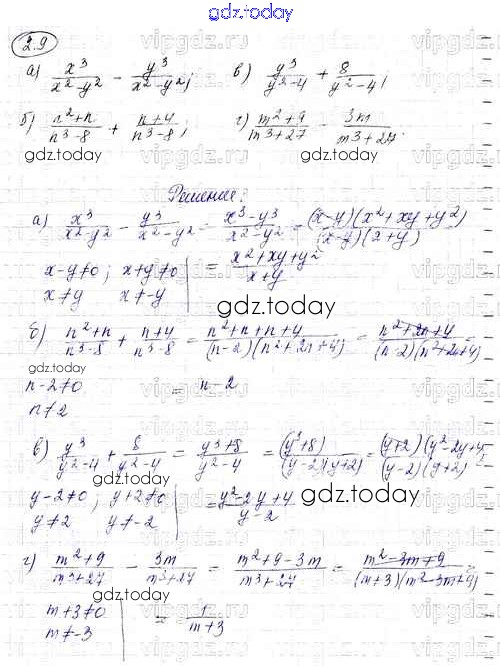 gdz.today
2.9
а) x³/(x²-y²) - y³/(x²-y²); в) y³/(y²-4) + 8/(y²-4);
б) (n²+n)/(n³-8) + (n+4)/(n³-8); г) (m²+9)/(m³+27) - 3m/(m³+27).
gdz.today gdz.today
Решение:
а) x³/(x²-y²) - y³/(x²-y²) = (x³-y³)/(x²-y²) = (x-y)(x²+xy+y²)/(x-y)(x+y)
x-y≠0; x+y≠0 | = (x²+xy+y²)/(x+y)
x≠y x≠-y
gdz.today
б) (n²+n)/(n³-8) + (n+4)/(n³-8) = (n²+n+n+4)/(n-2)(n²+2n+4) = (n²+2n+4)/(n-2)(n²+2n+4)
n-2≠0 = n-2
n≠2
в) y³/(y²-4) + 8/(y²-4) = (y³+8)/(y²-4) = (y³+8)/(y-2)(y+2) = (y+2)(y²-2y+4)/(y-2)(y+2)
y-2≠0; y+2≠0 | = (y²-2y+4)/(y-2)
y≠2 y≠-2
gdz.today
г) (m²+9)/(m³+27) - 3m/(m³+27) = (m²+9-3m)/(m³+27) = (m²-3m+9)/(m+3)(m²-3m+9)
m+3≠0 | = 1/(m+3)
m≠-3
gdz.today